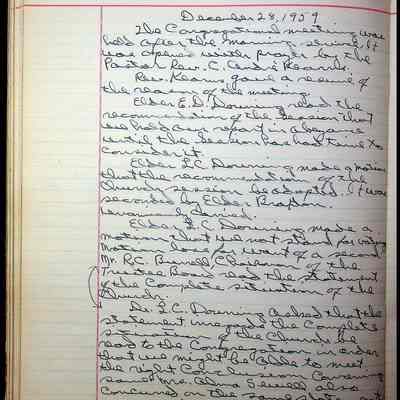 December 28, 1959
The Congregational meeting was
held after the morning service. It
was opened with prayer by the
Pastor Rev. C. André Kearns.
Rev. Kearns gave a resume of
the reason of the meeting.
Elder E.D. Downing read the
recommendation of the session that
we hold our report in abeyance
until the session has had time to
consider it.
Elder L.C. Downing made a motion
that the recommendation of the
Church session be adopted. It was
seconded by Elder
carried.
Elder L.C. Downing made a
motion that we not stand for voting
Motion lost for want of a second
Mr. R.C. Chairman of the
Trustee Board read the statement
of the Complete situation of the
Church.
Dr. L.C. Downing asked that the
statement the Complete
situation of the Church be
read to the Congregation in order
that we might be able to meet
the right Conclusion Concerning
same. Mrs. Alma Sewell also
concurred on the same